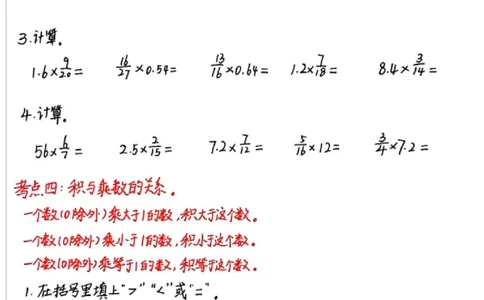 3.计算。
1.6×9/20= 16/27×0.54= 13/16×0.64= 1.2×7/18= 8.4×3/14=
4.计算。
56×6/7= 2.5×2/15= 7.2×7/12= 5/16×12= 3/4×7.2=
考点四:积与乘数的关系。
一个数(0除外)乘大于1的数,积大于这个数。
一个数(0除外)乘小于1的数,积小于这个数。
一个数(0除外)乘等于1的数,积等于这个数。
1.在括号里填上“>”“<”或“=”。